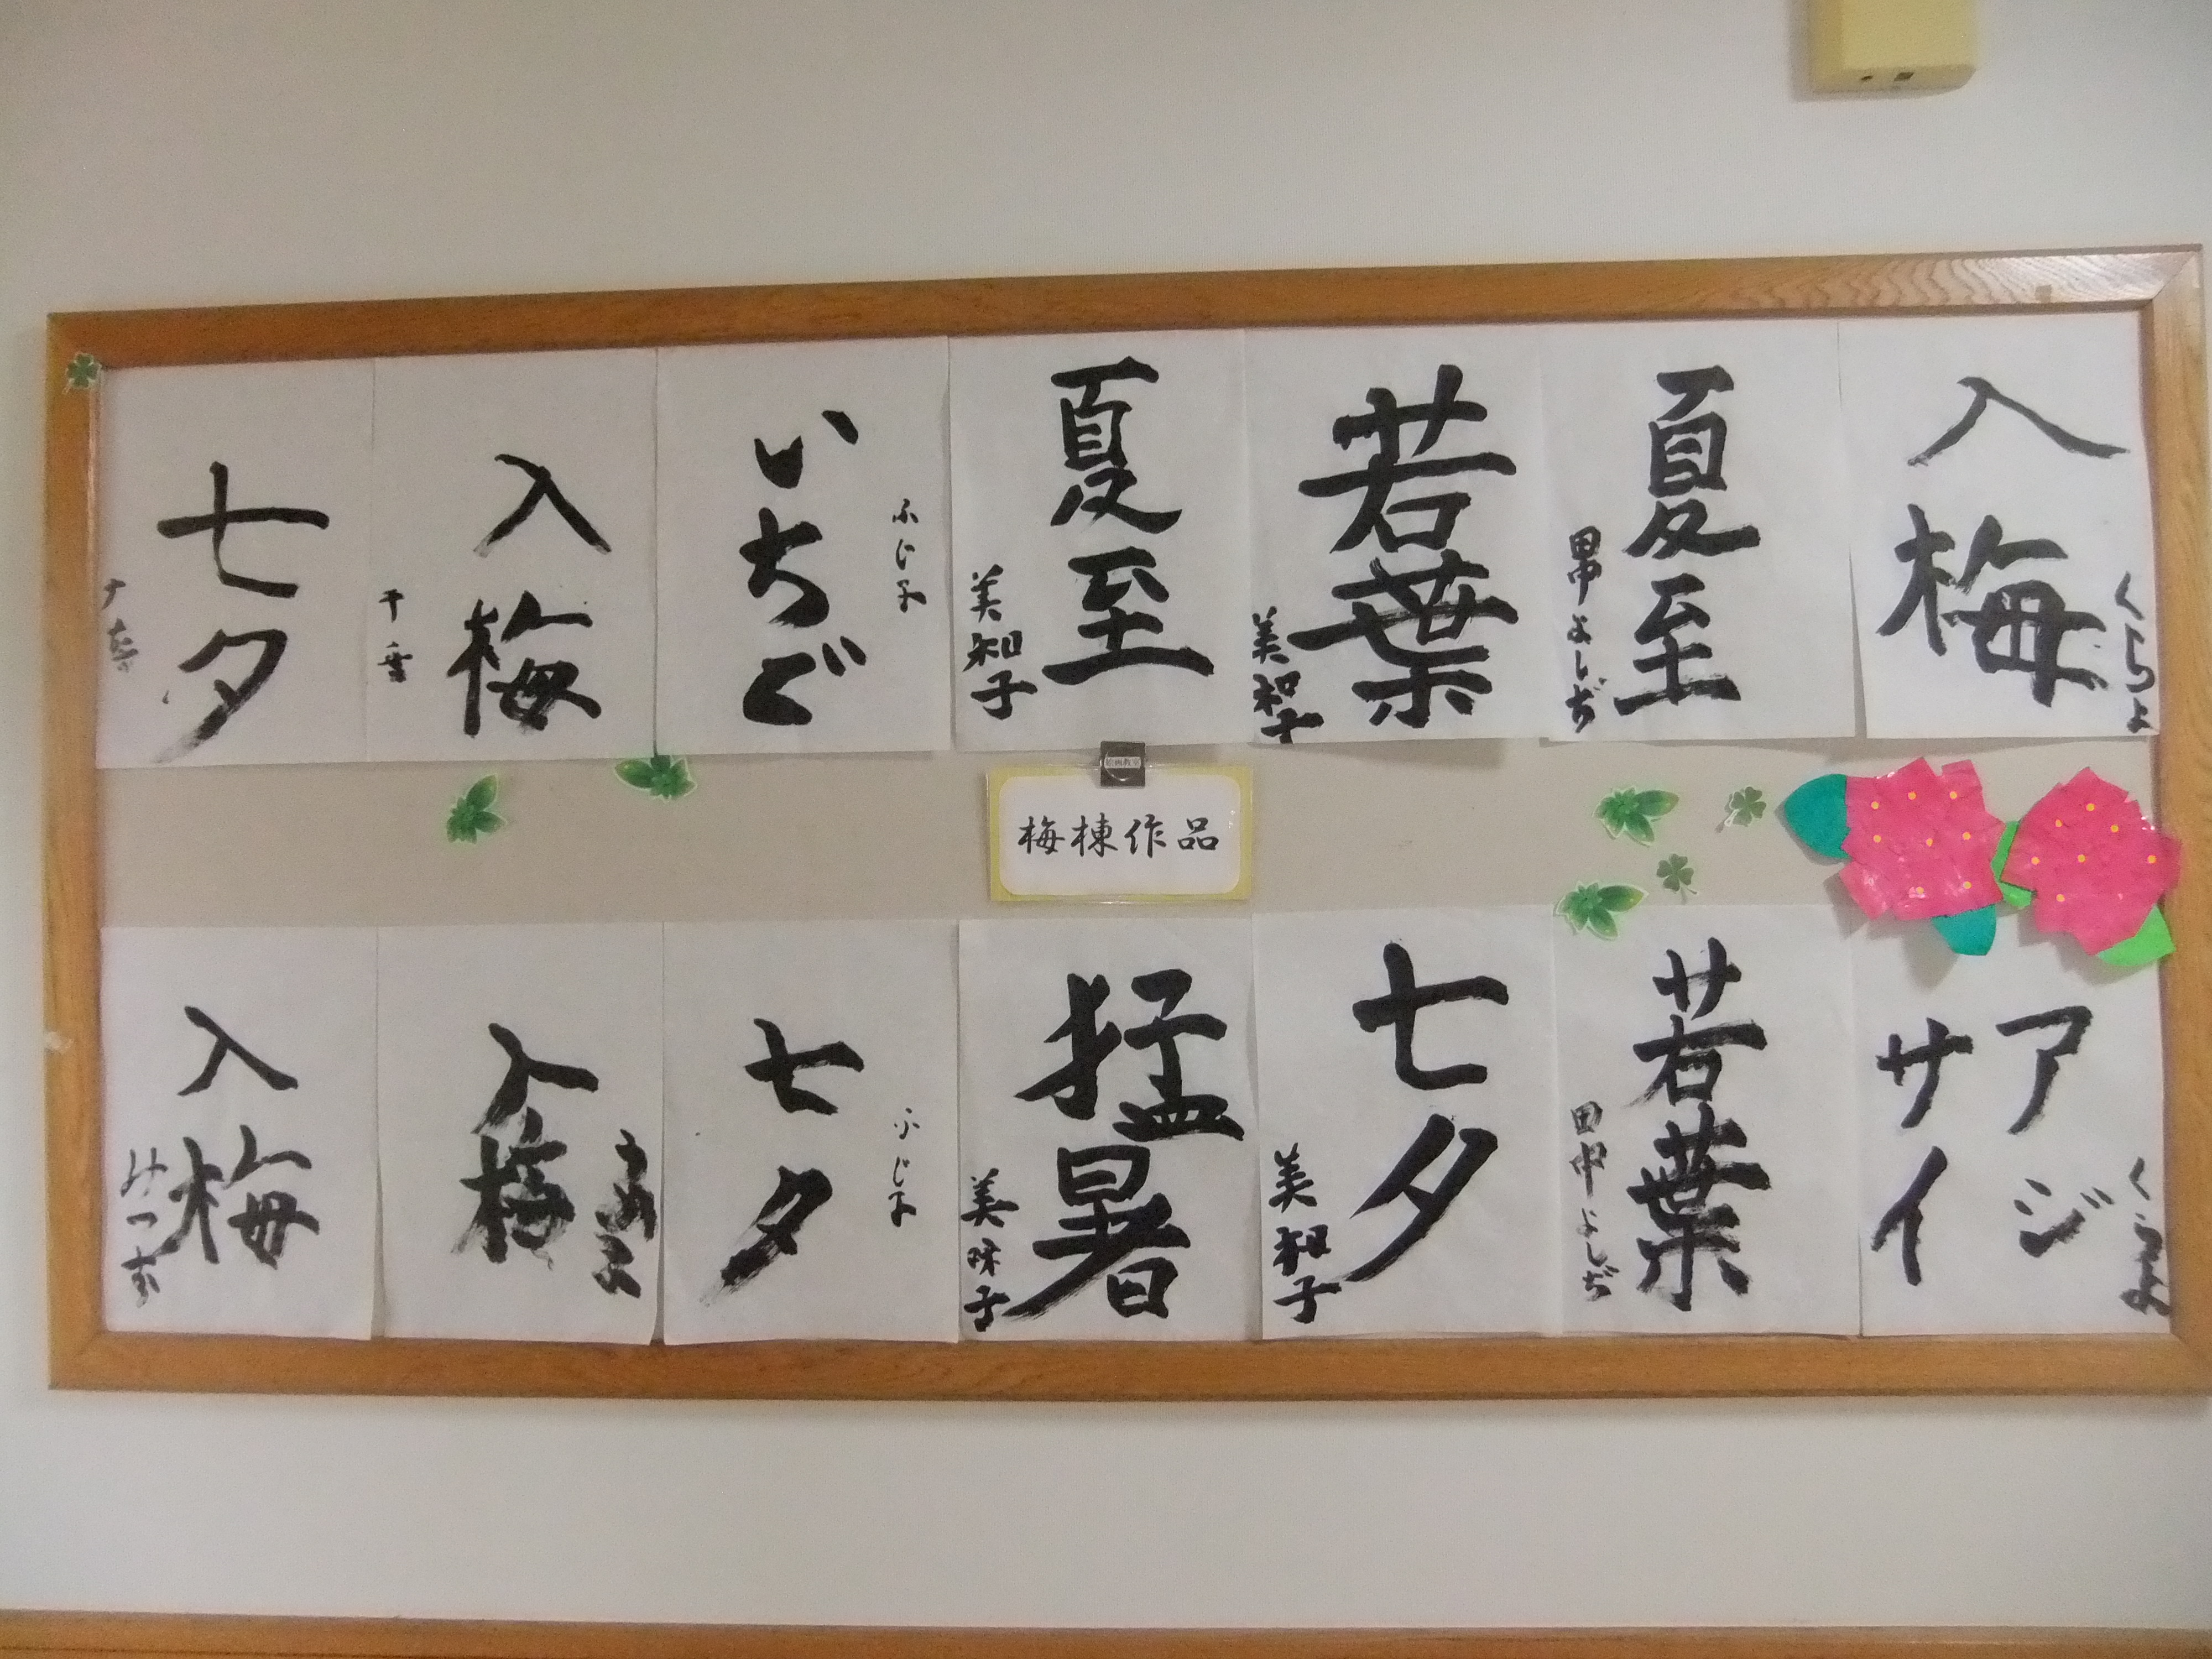 入梅
くらよ
夏至
田中よしぢ
若葉
美和子
夏至
美知子
いちご
ふじ子
入梅
七夕
絵画教室
梅棟作品
アジ
サイ
くらよ
若葉
田中よしぢ
七夕
美和子
猛暑
美咲子
七夕
ふじ子
入梅
入梅